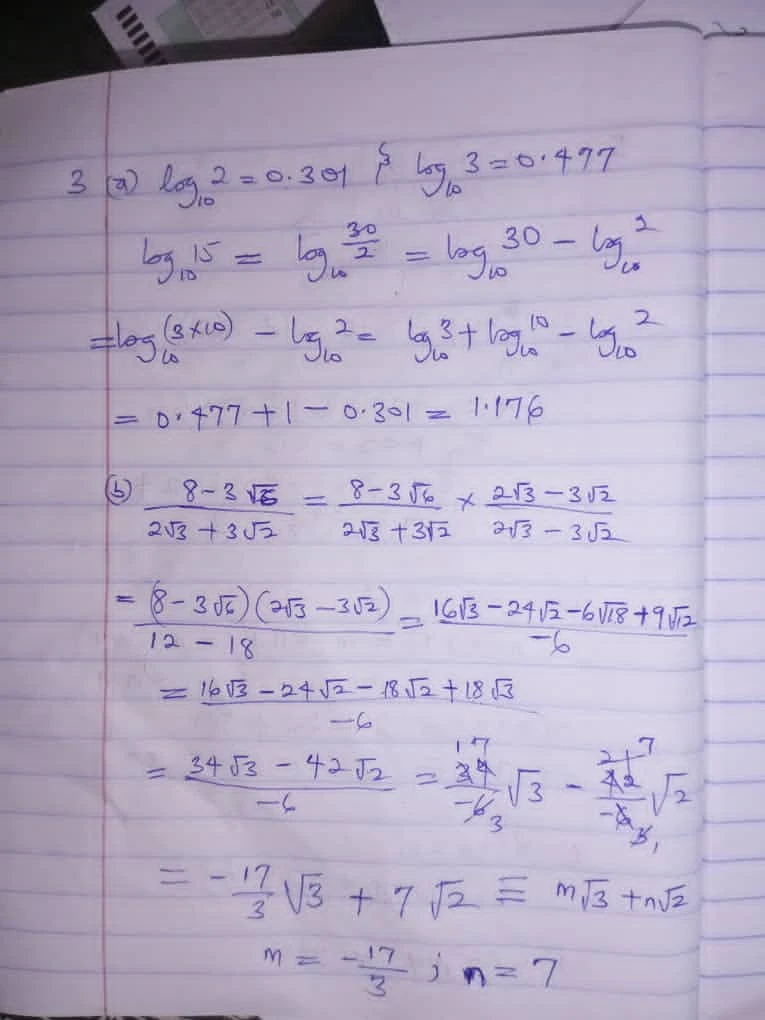 3 (a) log₁₀ 2 = 0.301 & log₁₀ 3 = 0.477
log₁₀ 15 = log₁₀ 30/2 = log₁₀ 30 − log₁₀ 2
= log₁₀ (3×10) − log₁₀ 2 = log₁₀ 3 + log₁₀ 10 − log₁₀ 2
= 0.477 + 1 − 0.301 = 1.176
(b) (8 − 3√6)/(2√3 + 3√2) = (8 − 3√6)/(2√3 + 3√2) × (2√3 − 3√2)/(2√3 − 3√2)
= (8 − 3√6)(2√3 − 3√2)/(12 − 18) = (16√3 − 24√2 − 6√18 + 9√12)/−6
= (16√3 − 24√2 − 18√2 + 18√3)/−6
= (34√3 − 42√2)/−6 = 34/−6 √3 − 42/−6 √2
= −17/3 √3 + 7√2 ≡ m√3 + n√2
m = −17/3 ; n = 7